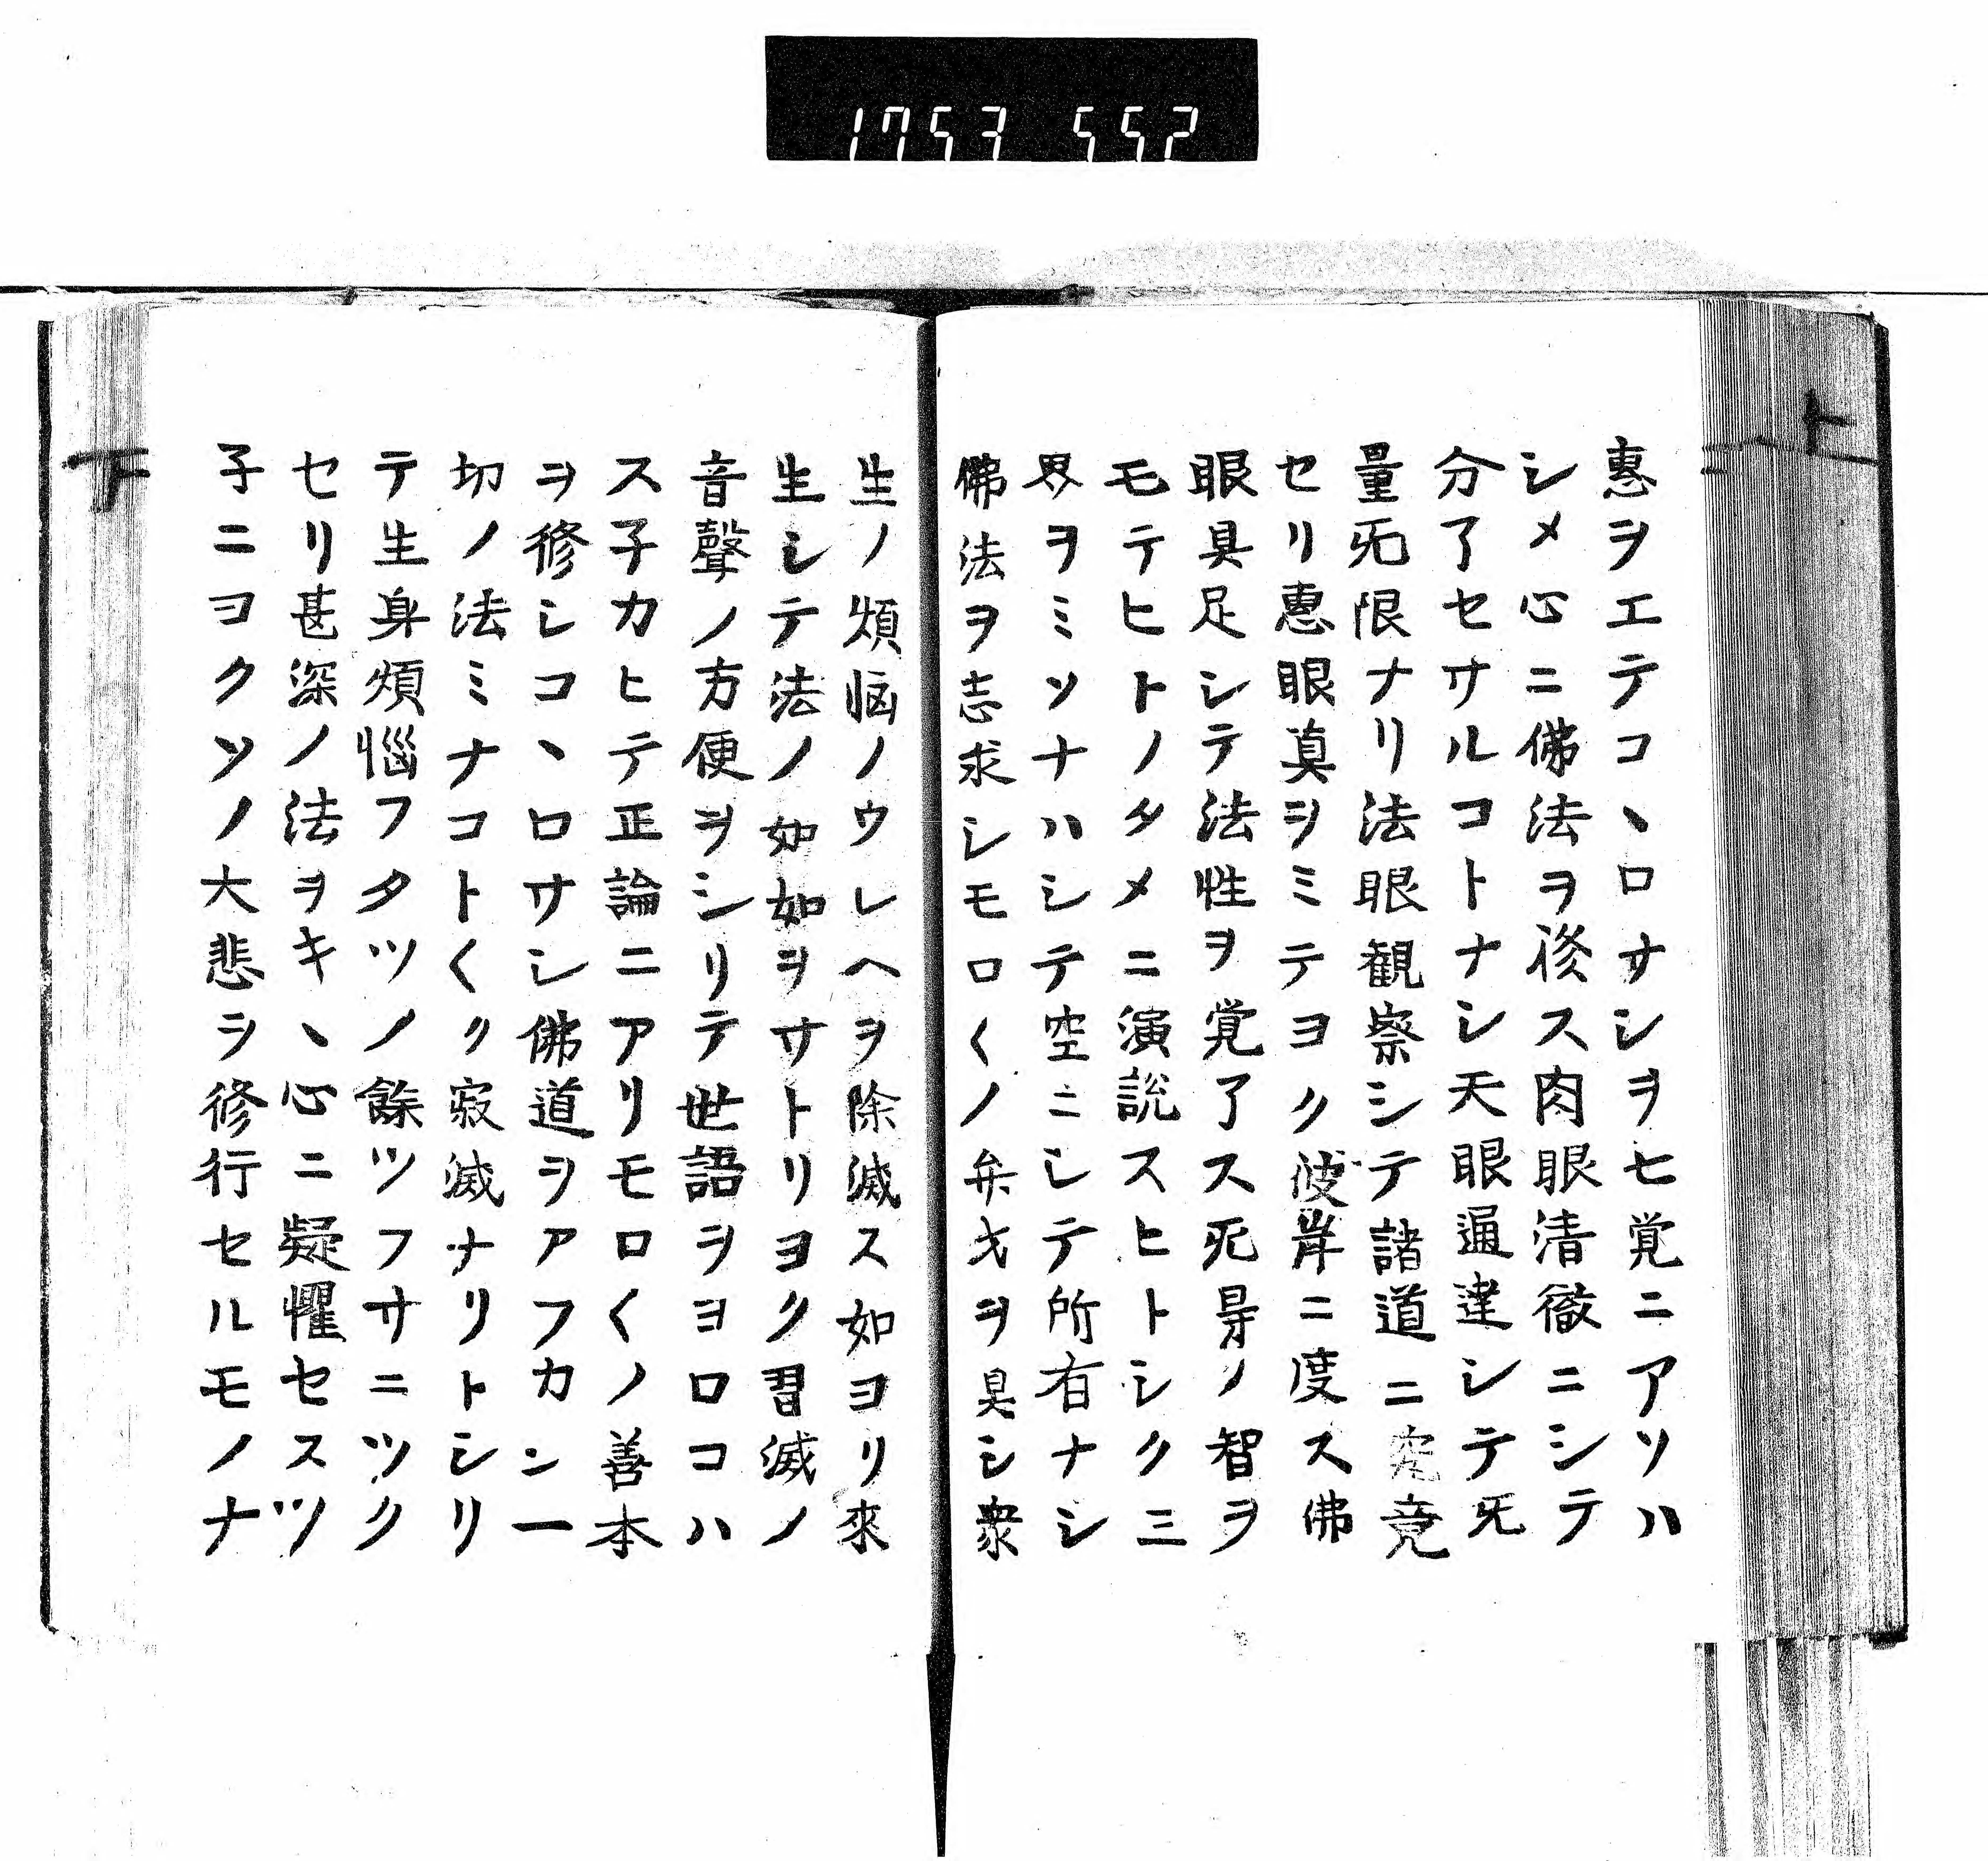 1753 552
上
惠ヲエテコヽロサシヲヒ覚ニアソハ
シメ心ニ佛法ヲ俊ス肉眼清徹ニシテ
分了セサルコトナシ天眼通達シテ无
量无限ナリ法眼観察シテ諸道ニ究竟
セリ惠眼真ヲミテヨク彼岸ニ度ス佛
眼具足シテ法性ヲ覚了ス死㝵ノ智ヲ
モテヒトノタメニ演説スヒトシク三
界ヲミソナハシテ空ニシテ所有ナシ
佛法ヲ志求シモロ〱ノ弁才ヲ具シ衆
生ノ煩悩ノウレヘヲ除滅ス如ヨリ来
生シテ法ノ如如ヲサトリヨク習滅ノ
音聲ノ方便ヲシリテ世語ヲヨロコハ
ス子カヒテ正論ニアリモロ〱ノ善本
ヲ修シコヽロサシ佛道ヲアフカン一
切ノ法ミナコト〱ク寂滅ナリトシリ
テ生身煩惱フタツノ餘ツフサニツク
セリ甚深ノ法ヲキヽ心ニ疑懼セスツ
子ニヨクソノ大悲ヲ修行セルモノナ
下